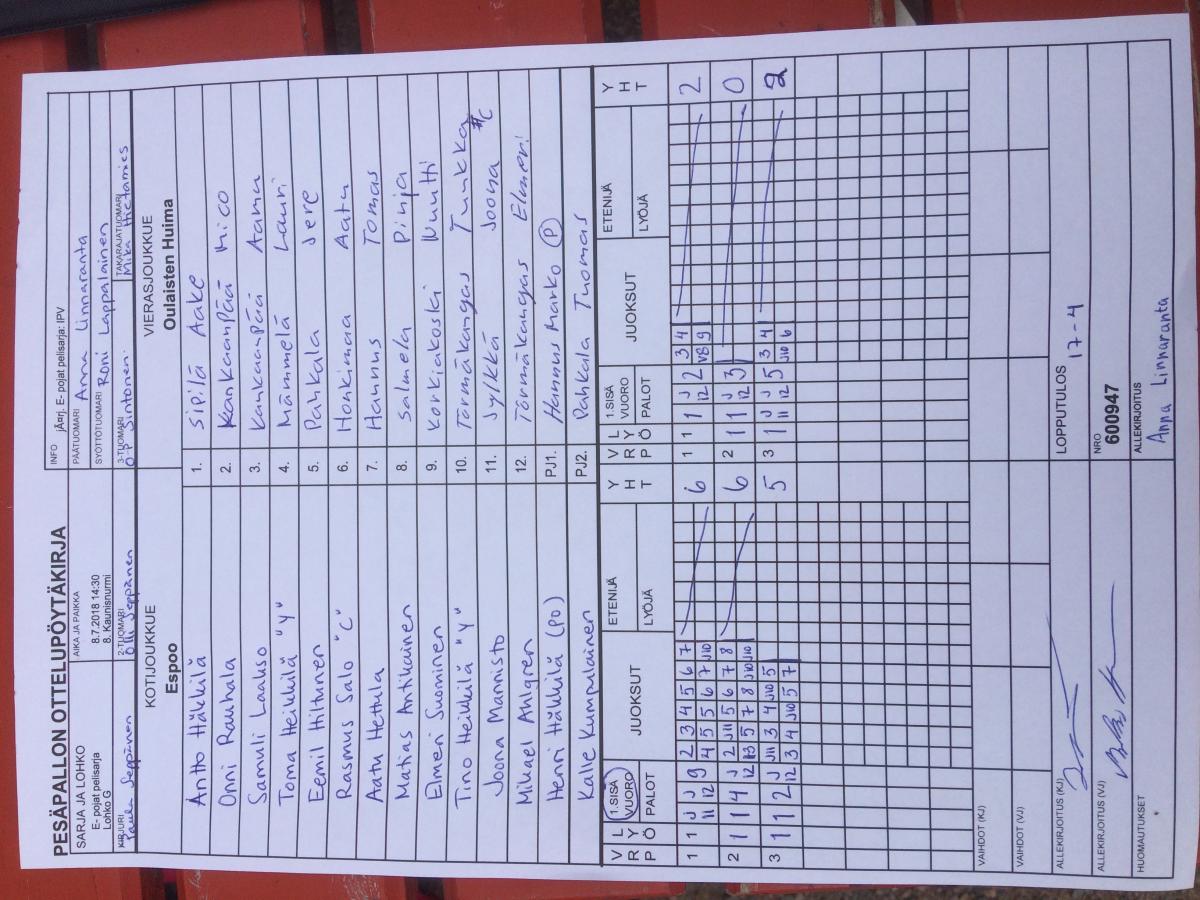 PESÄPALLON OTTELUPÖYTÄKIRJA
SARJA JA LOHKO
E- pojat pelisarja
Lohko G
AIKA JA PAIKKA
8.7.2018 14:30
8. Kaunisnurmi
INFO
jÃ¤rj. E- pojat pelisarja: IPV
PÄÄTUOMARI Anna Linnaranta
SYÖTTÖTUOMARI Roni Lappalainen
KIRJURI
Paula Seppänen
2-TUOMARI
Olli Seppänen
3-TUOMARI
O-P Sintonen
TAKARAJATUOMARI
Mika Hietamies
KOTIJOUKKUE
Espoo
VIERASJOUKKUE
Oulaisten Huima
Antto Häkkilä 1. Sipilä Aake
Onni Rauhala 2. Kankaanpää Nico
Samuli Laakso 3. Kankaanpää Aamu
Toma Heikkilä "Y" 4. Mämmelä Lauri
Eemil Hiltunen 5. Pahkala Jere
Rasmus Salo "C" 6. Honkimaa Aatu
Aatu Hettula 7. Hannus Tomas
Matias Antikainen 8. Salmela Pinja
Elmeri Suominen 9. Korkiakoski Nuutti
Tino Heikkilä "Y" 10. Törmäkangas Tuukka
Joona Mannisto 11. Jylkkä Joona #C
Mikael Ahlgren 12. Törmäkangas Elmeri
Henri Häkkilä (PO) PJ1. Hannus Marko P
Kalle Kumpulainen PJ2. Pahkala Tuomas
VRP LYÖ 1.SISÄ VUORO PALOT JUOKSUT ETENIJÄ LYÖJÄ YHT
VRP LYÖ 1.SISÄ VUORO PALOT JUOKSUT ETENIJÄ LYÖJÄ YHT
1 1 J J 9 2 3 4 5 6 7 6
11 12 4 5 5 6 7 J10
1 1 J 2 3 4 2
12 V8 9
2 1 1 4 J 2 J11 5 6 7 8 6
12 13 5 7 8 J10 J10
2 1 1 J 3 0
12
3 1 1 2 J J11 3 4 J10 5 5
12 3 4 J10 5 7
3 1 J J 5 3 4 2
11 12 J10 6
VAIHDOT (KJ)
VAIHDOT (VJ)
ALLEKIRJOITUS (KJ)
LOPPUTULOS
17-4
ALLEKIRJOITUS (VJ)
NRO
600947
HUOMAUTUKSET
ALLEKIRJOITUS
Anna Linnaranta